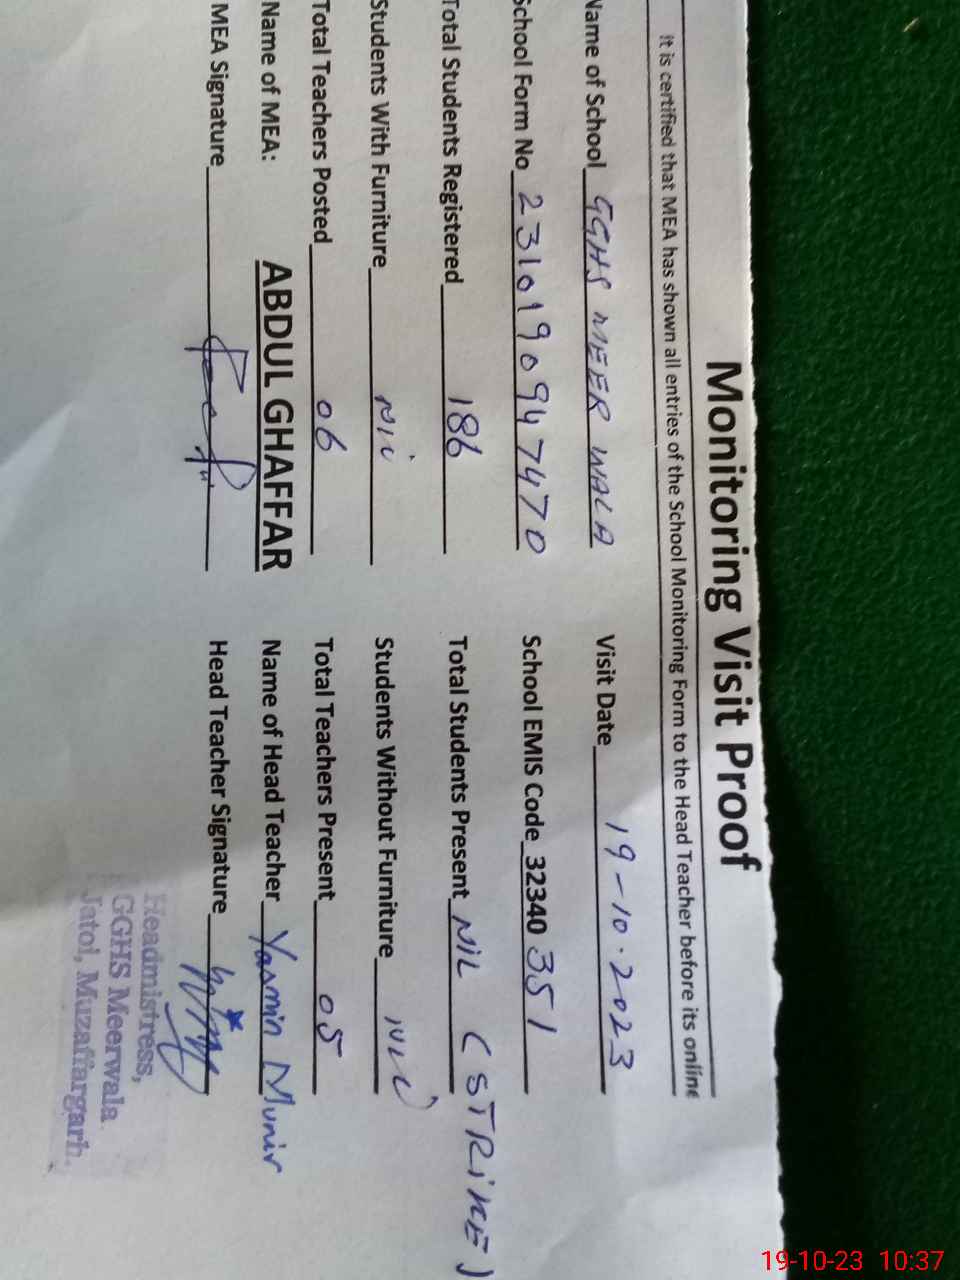 Monitoring Visit Proof
It is certified that MEA has shown all entries of the School Monitoring Form to the Head Teacher before its online
Name of School GGHS MEER WALA Visit Date 19-10.2023
School Form No 2310190947470 School EMIS Code 32340351
Total Students Registered 186 Total Students Present NIL (STRIKE)
Students With Furniture Nil Students Without Furniture NIL
Total Teachers Posted 06 Total Teachers Present 05
Name of MEA: ABDUL GHAFFAR Name of Head Teacher Yasmin Munir
MEA Signature Head Teacher Signature
Headmistress,
GGHS Meerwala
Jatoi, Muzaffargarh.
19-10-23 10:37